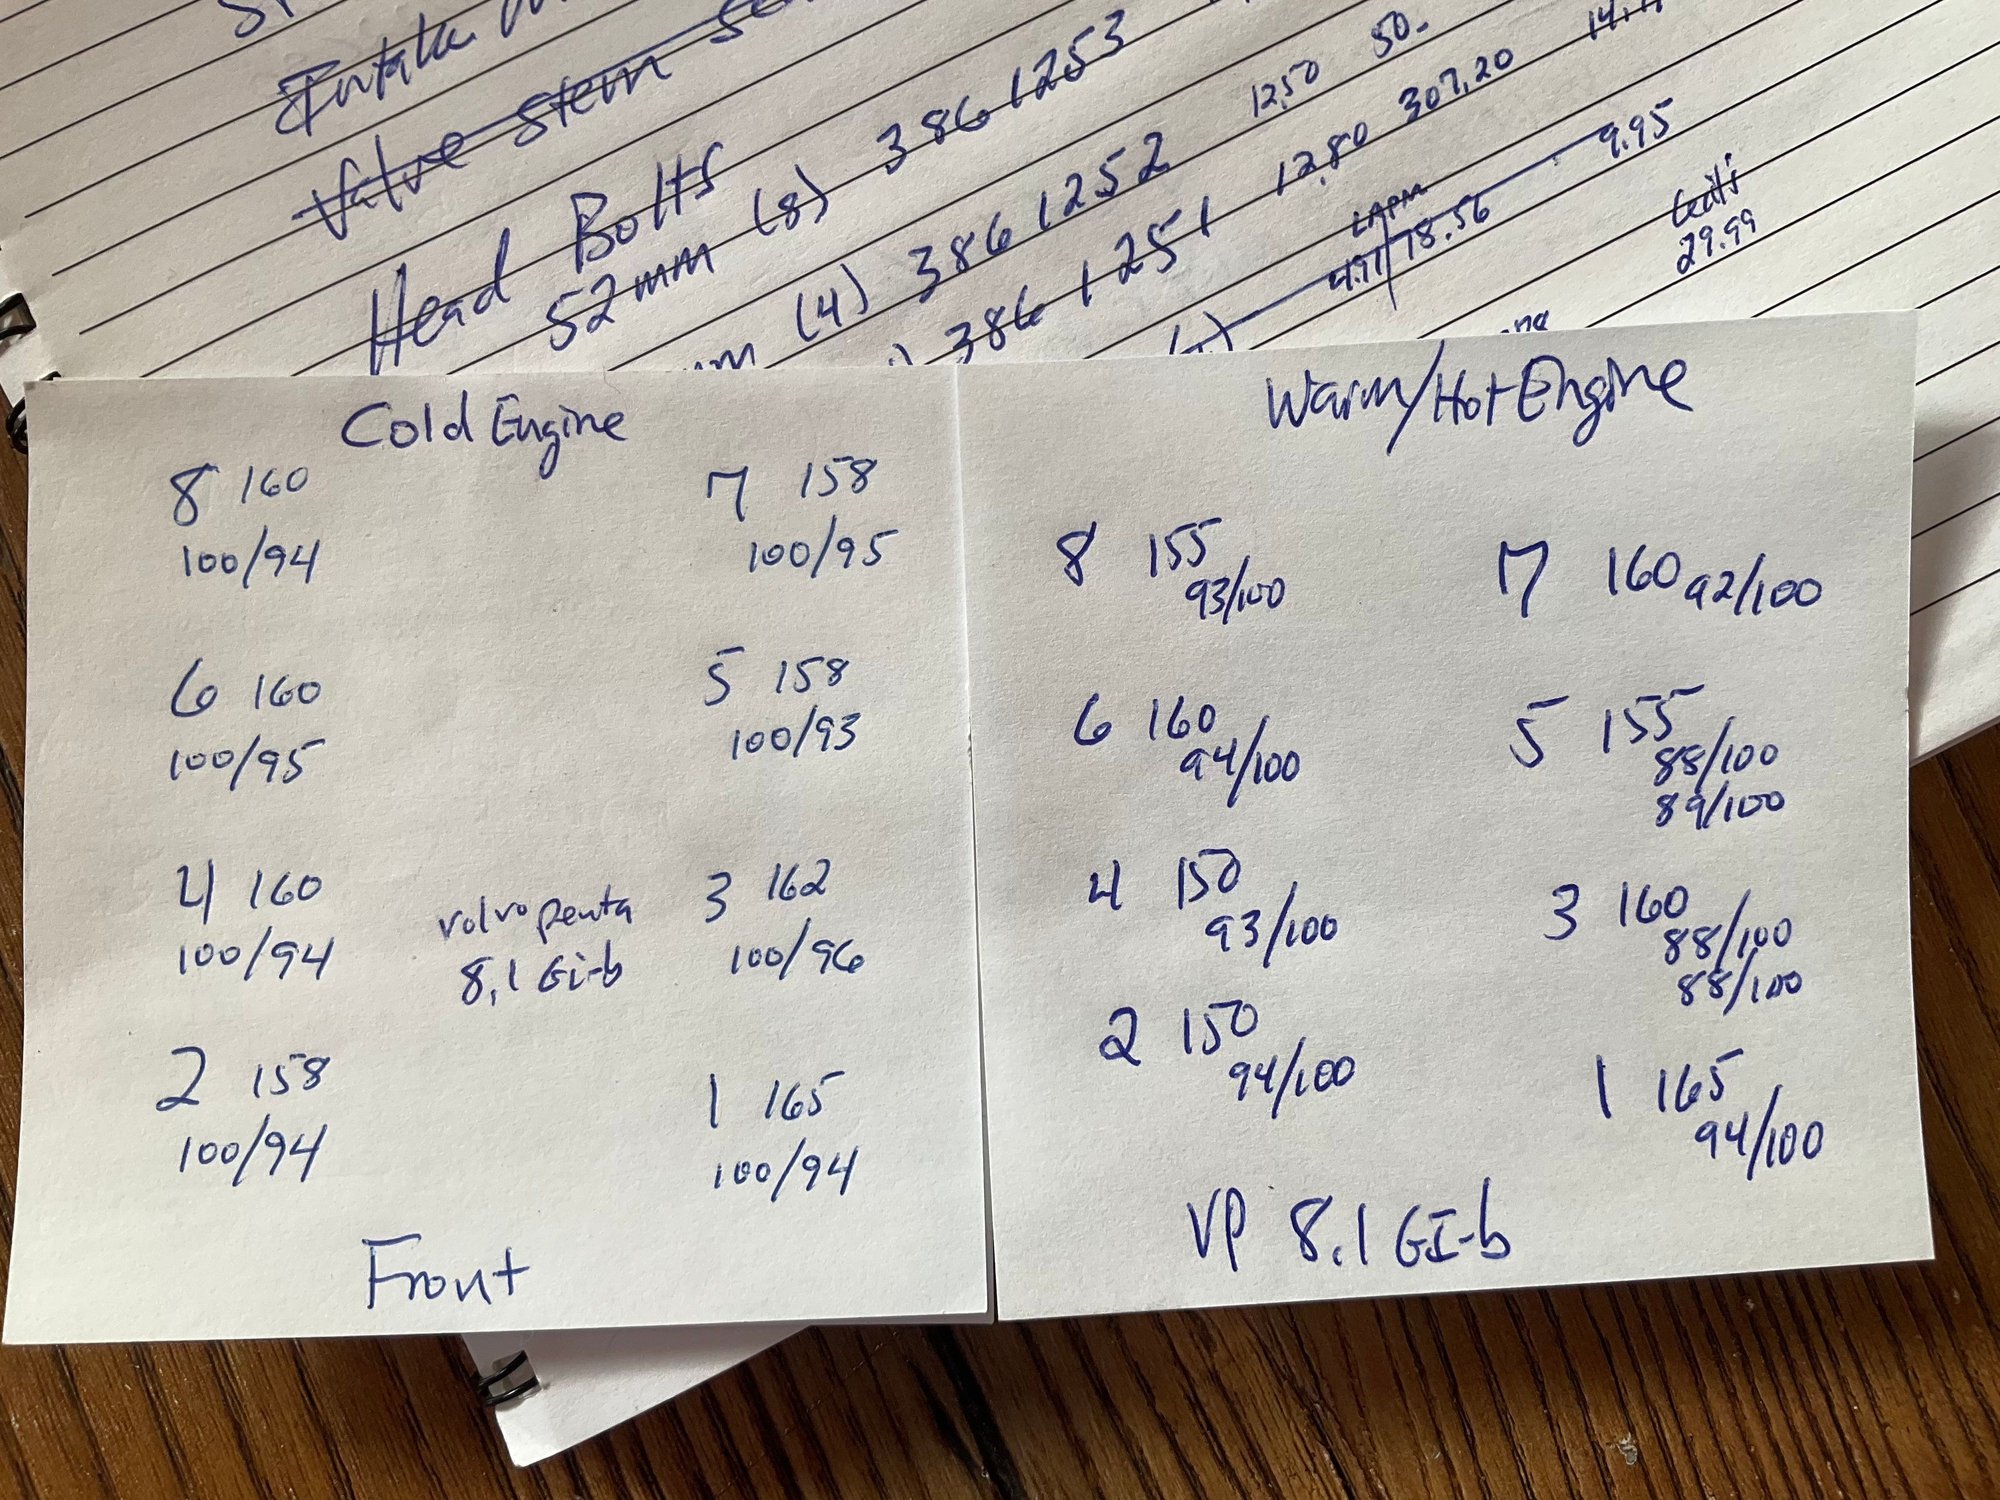 Intake
Valve stem
Head Bolts
52mm (8) 3861253
(4) 3861252 12,50 50.-
3861251 12,80 307,20
4.97 78.56 9.95
29.99
Cold Engine
8 160
100/94
7 158
100/95
6 160
100/95
5 158
100/93
4 160
100/94
volvo penta
8,1 Gi-b
3 162
100/96
2 158
100/94
1 165
100/94
Front
Warm/Hot Engine
8 155
93/100
7 160 92/100
6 160
94/100
5 155
88/100
89/100
4 150
93/100
3 160
88/100
88/100
2 150
94/100
1 165
94/100
VP 8.1 GI-b